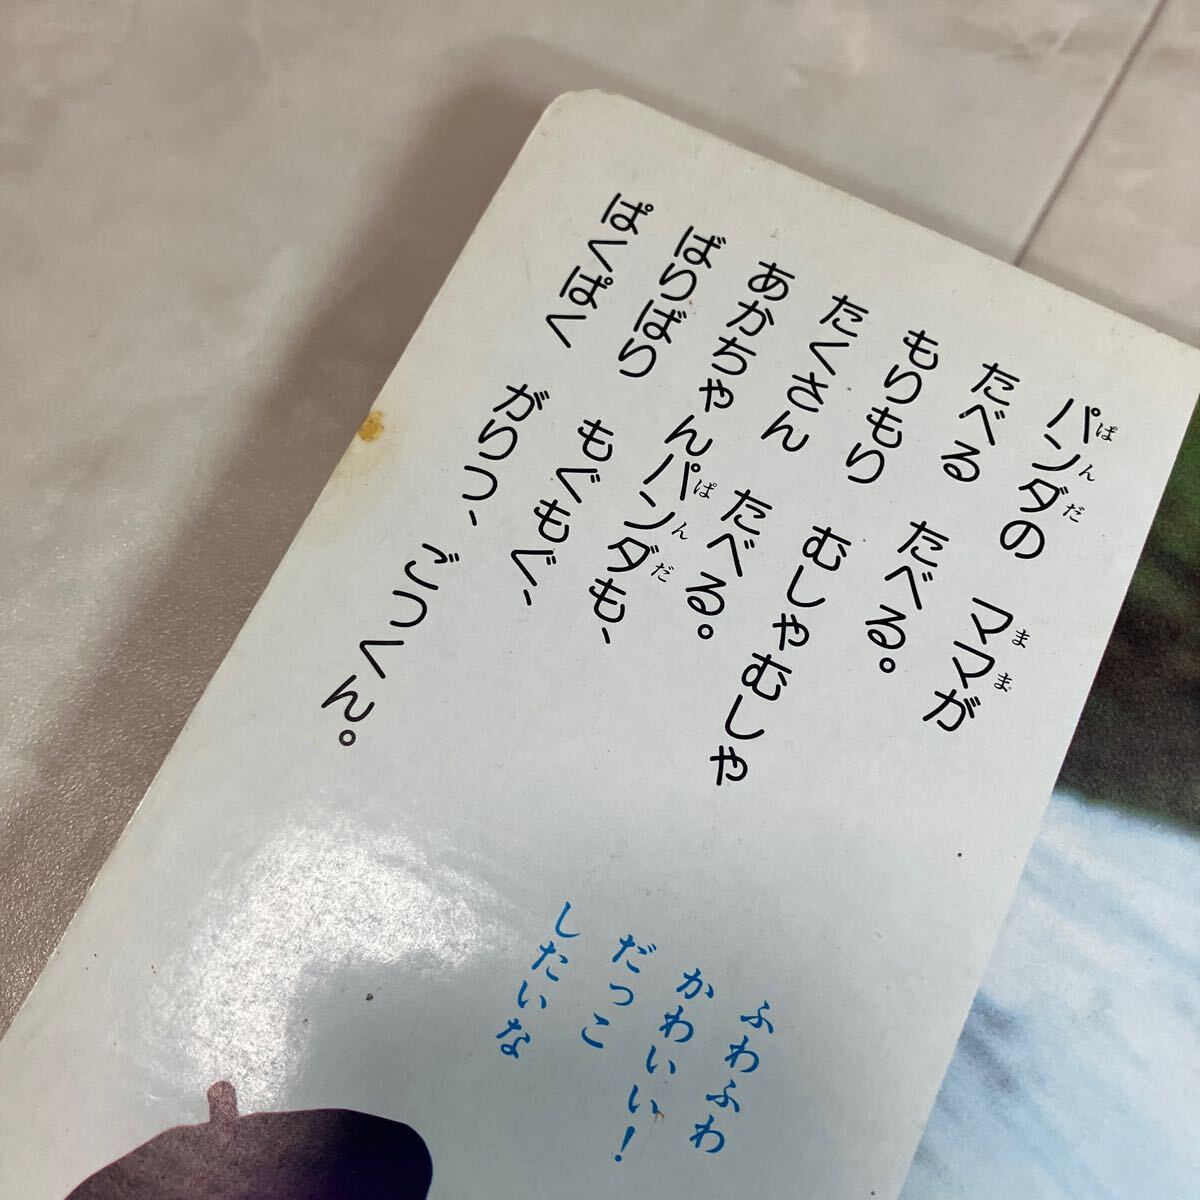 ぱんだ まま
パンダの ママが
たべる たべる。
もりもり むしゃむしゃ
たくさん たべる。
ぱんだ
あかちゃんパンダも、
ばりばり もぐもぐ、
ぱくぱく がりっ、ごっくん。
ふわふわ
かわいい!
だっこ
したいな